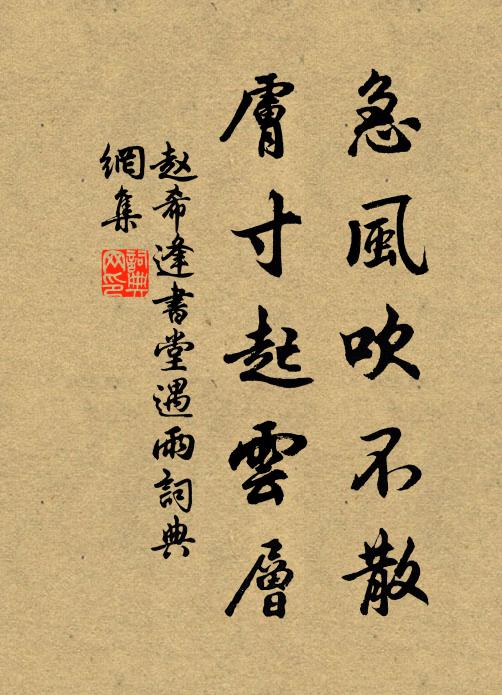 急風吹不散
膚寸起雲層
赵希逢書堂遇雨詞典
網集
詞典
网印